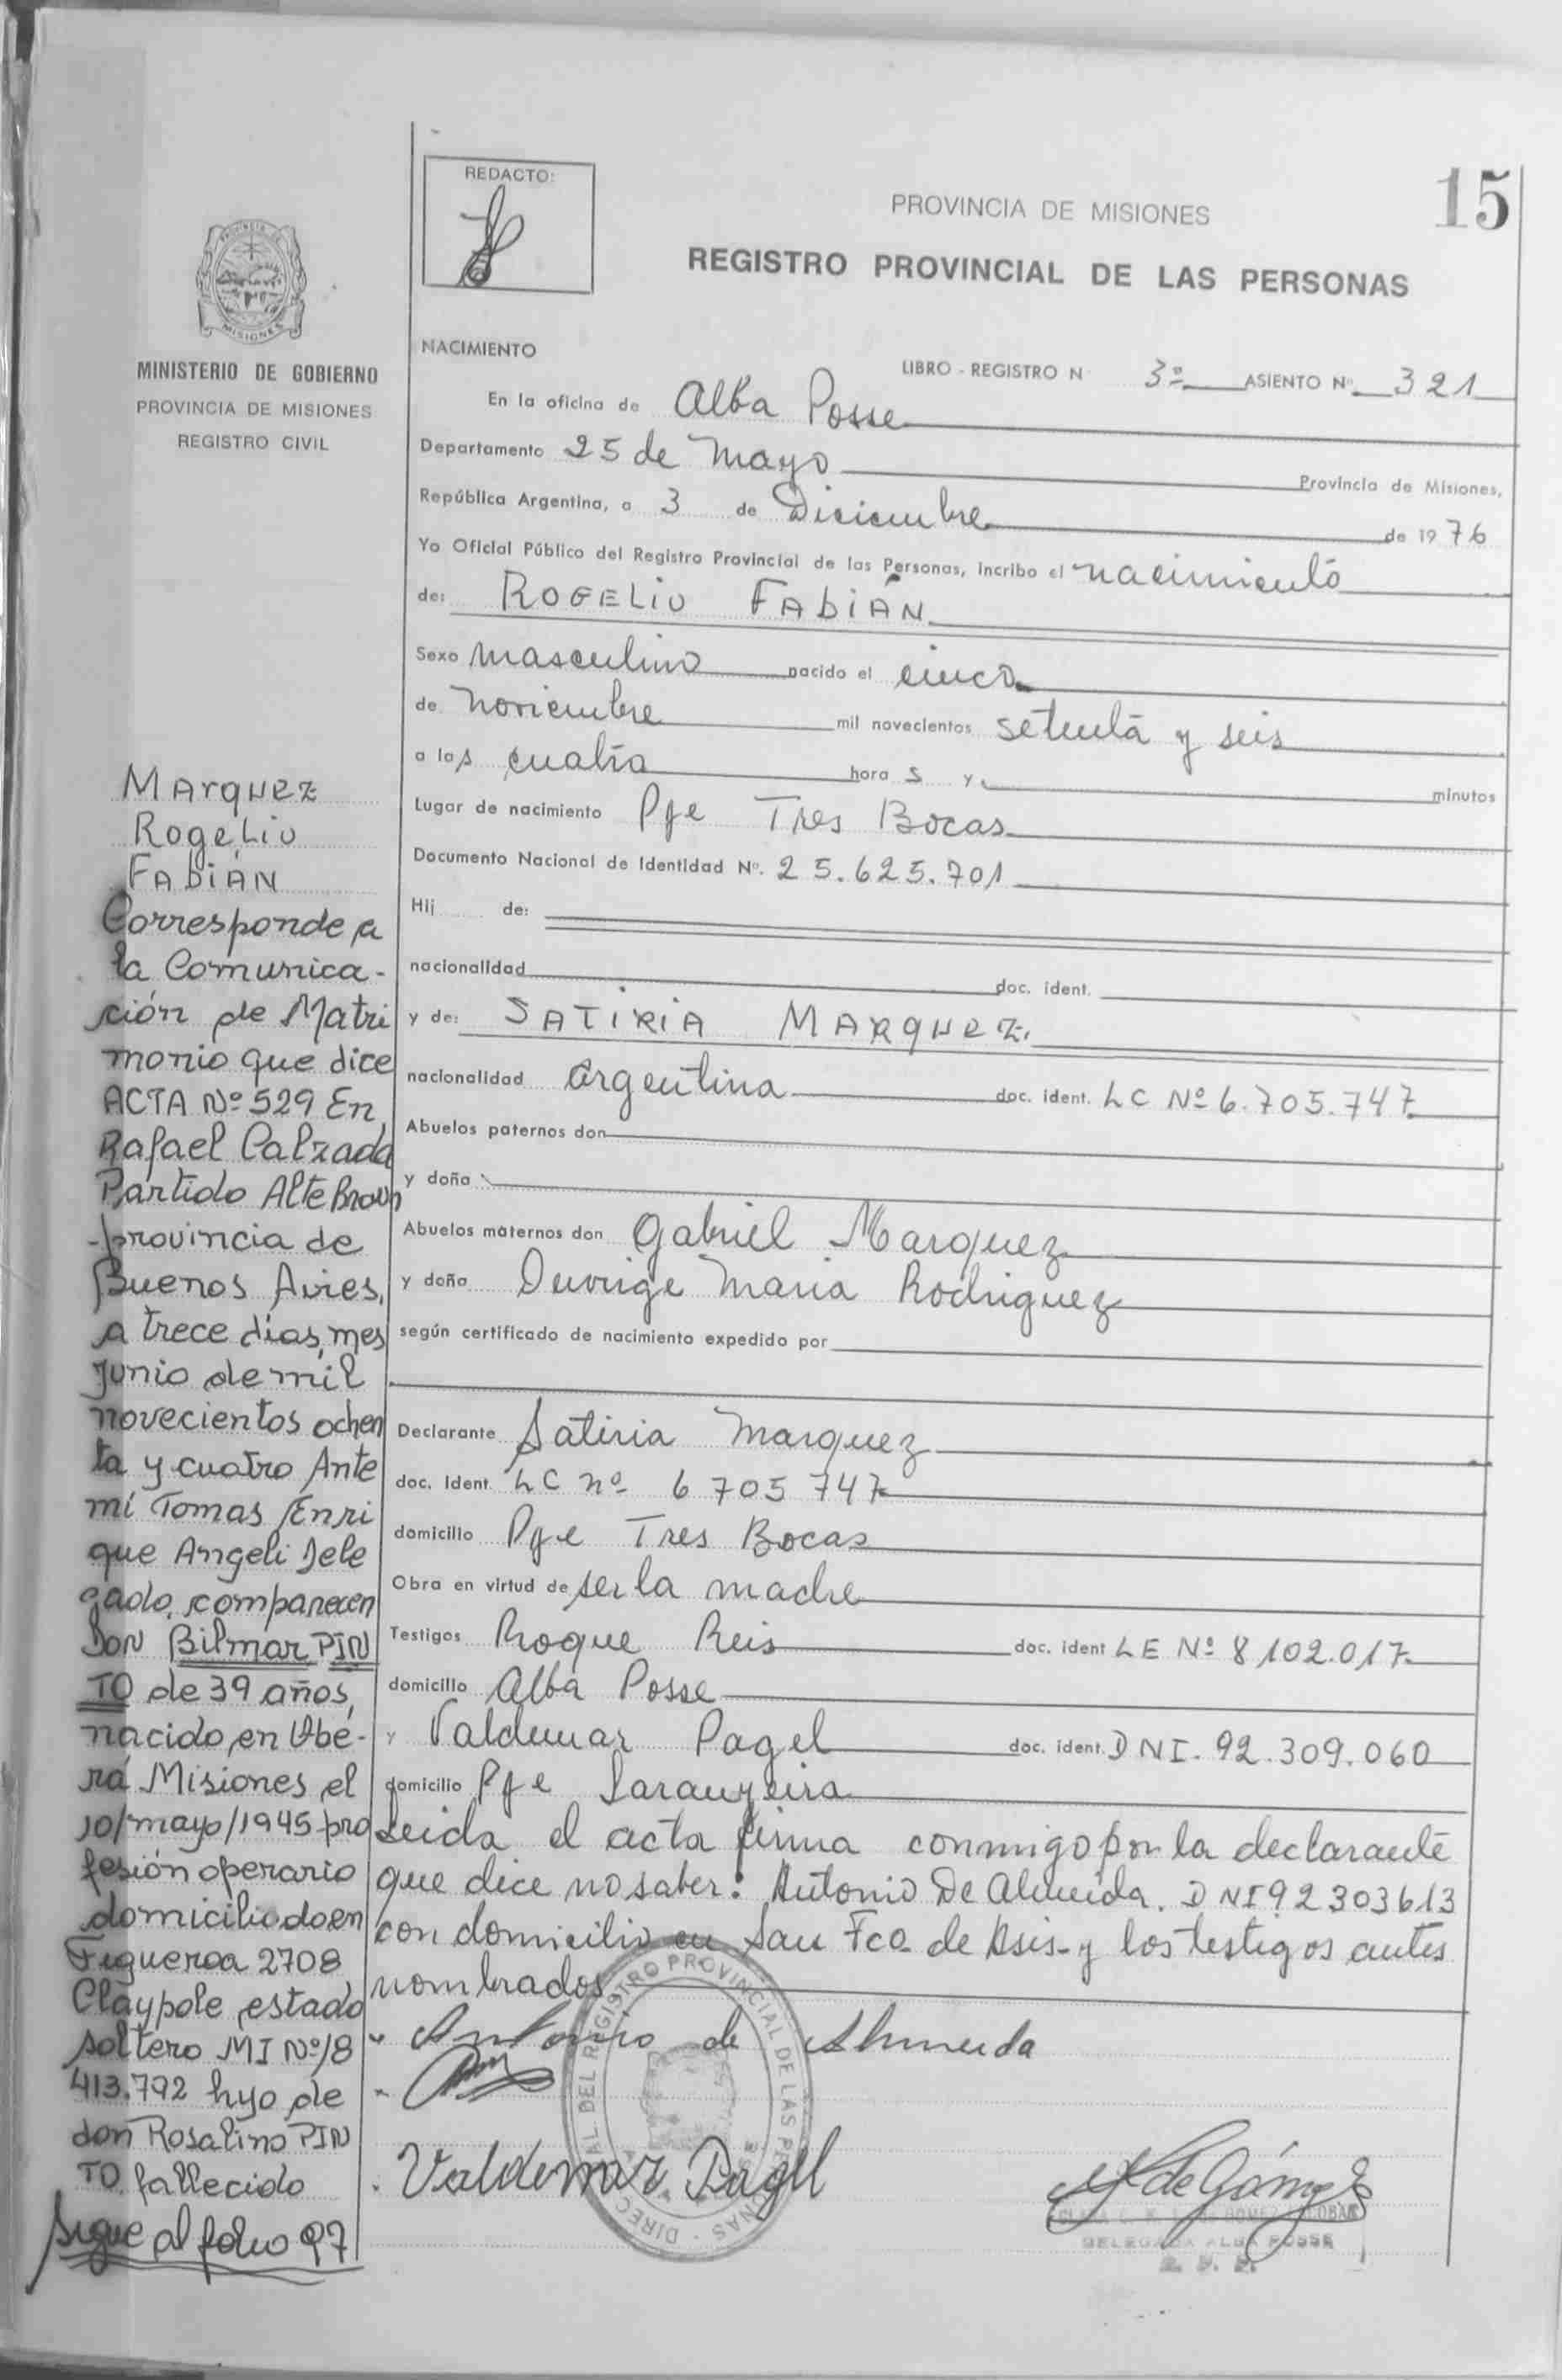 15
REDACTO:
PROVINCIA DE MISIONES
REGISTRO PROVINCIAL DE LAS PERSONAS
MISIONES
MINISTERIO DE GOBIERNO
PROVINCIA DE MISIONES
REGISTRO CIVIL
NACIMIENTO
LIBRO - REGISTRO N 3º ASIENTO Nº 321
En la oficina de Alba Posse
Departamento 25 de Mayo Provincia de Misiones,
República Argentina, a 3 de Diciembre de 1976
Yo Oficial Público del Registro Provincial de las Personas, incribo el nacimiento
de: ROGELIO FABIÁN
Sexo masculino nacido el cinco
de noviembre mil novecientos setenta y seis
a las cuatro hora s y minutos
Lugar de nacimiento Pje Tres Bocas
Documento Nacional de Identidad Nº. 25.625.701
Hij de:
nacionalidad doc. ident.
y de: SATIRIA MARQUEZ.
nacionalidad Argentina doc. ident. LC Nº 6.705.747
Abuelos paternos don
y doña
Abuelos maternos don Gabriel Marquez
y doña Maria Rodriguez
según certificado de nacimiento expedido por
Declarante Satiria Marquez
doc. Ident. LC nº 6 705 747
domicilio Pje Tres Bocas
Obra en virtud de ser la madre
Testigos Roque Reis doc. ident LE Nº 8102.017
domicilio Alba Posse
y Valdemar Pagel doc. ident. DNI. 92.309.060
domicilio Pje Laranyeira
Leida el acta firma conmigo por la declarante
que dice no saber: Antonio De Almeida. DNI 92303613
con domicilio en San Fco de Asis y los testigos antes
nombrados
Antonio de Almeida
Valdemar Pagel
DIRECC AL DEL REGISTRO PROVINCIAL DE LAS PE NAS
de Gómez
DELEGADA ALBA POSSE
Marquez
Rogelio
FABIÁN
Corresponde a
la Comunica-
ción de Matri
monio que dice
ACTA Nº 529 En
Rafael Calzada
Partido Alte Brown
provincia de
Buenos Aires,
a trece dias, mes
Junio de mil
novecientos ochen
ta y cuatro Ante
mi Tomas Enri
que Angeli Dele
gado, comparecen
Don Bilmar PIN
TO de 39 años,
nacido en Obe-
rá Misiones el
10/mayo/1945 pro
fesión operario
domiciliado en
Figueroa 2708
Claypole estado
soltero MI Nº/8
413.792 hijo de
don Rosalino PIN
TO fallecido
Sigue al folio 97